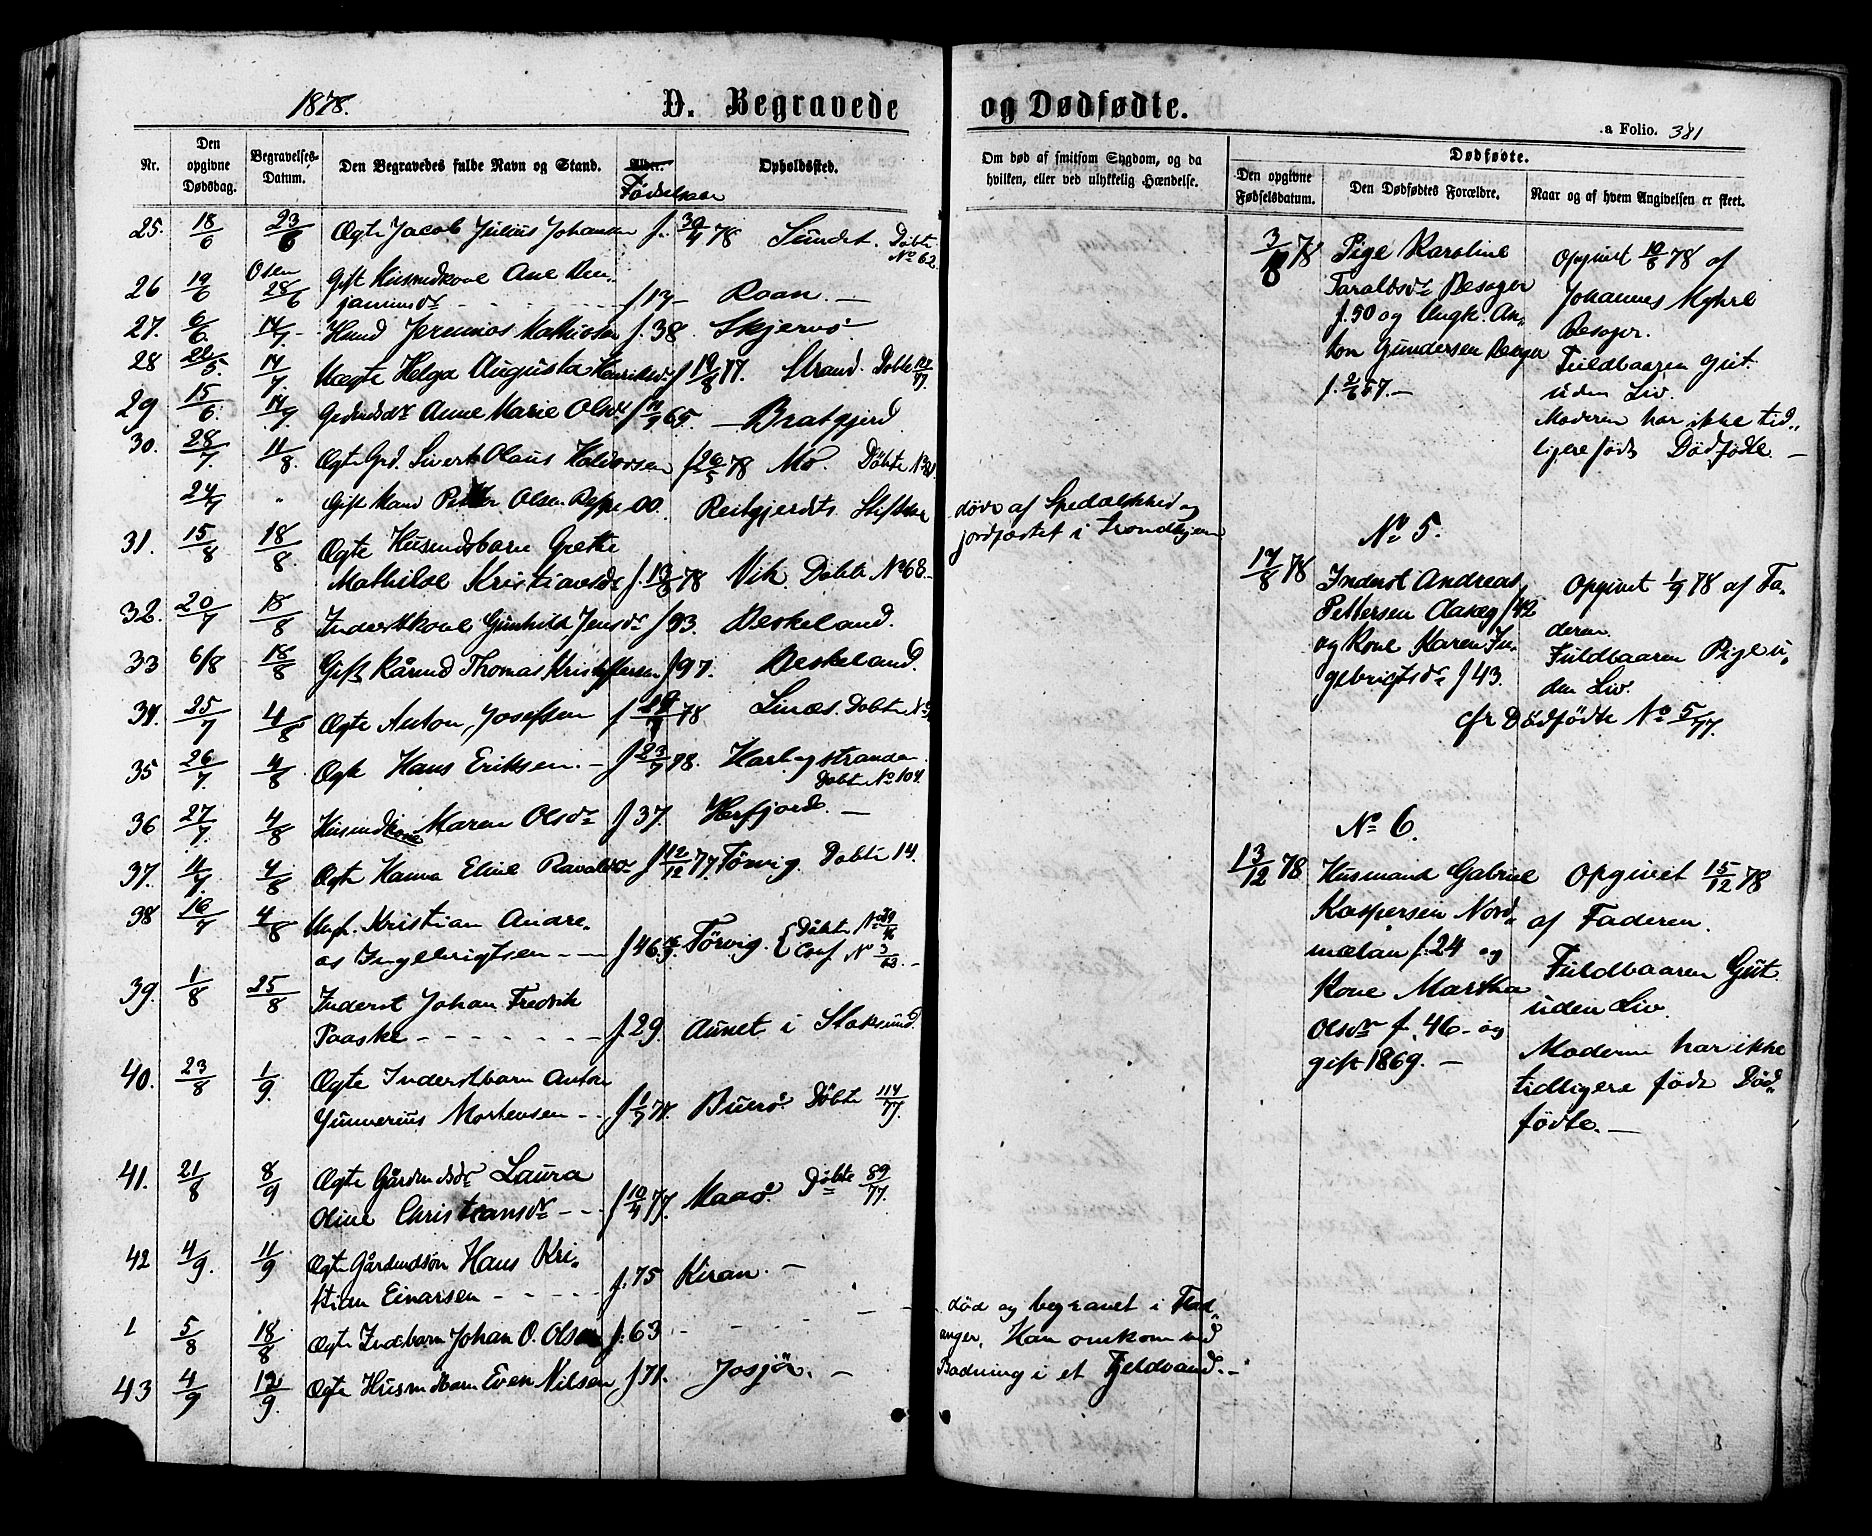 1878.
D. Begravede og Dødfødte.
a Folio. 381
Nr.
Den opgivne Dødsdag.
Begravelses-Datum.
Den Begravedes fulde Navn og Stand.
Alder.
Fødselsaar
Opholdssted.
Om død af smitsom Sygdom, og da hvilken, eller ved ulykkelig Hændelse.
Dødfødte.
Den opgivne Fødselsdatum.
Den Dødfødtes Forældre.
Naar og af hvem Angivelsen er skeet.
25. 18/6 23/6 Ægte Jacob Julius Johansen f. 30/4 78 Sundet. Døbte No 62
26 19/6 28/6 Gift Husmdkone Ane Ben-
jaminsdr f 17 Roan. —
27. 6/6 14/7 Jeremias Mathiasen f. 38 Skjervø
28 14/7. Uægte Helga Augusta Henriksdr f 19/8 77. Strand. Døbte
29 15/6. 14/7 Grdmdsdr Anne Marie Olsdr 65. — Bratgjerd
30. 28/7 11/8. Ægte Grd. Sivert Olaus Haldorsen f 26/5 78 Mo. Døbte
24/7 " Gift Mand Petter Olsen 00. Reitgjerdets Stiftelse
døde af Spedalskhed og
jordfæstet i Trondhjem
31. 15/8 18/8. Ægte Husmdsbarn Grethe
Mathilde Kristiansdr f. 13/8 78 Vik Døbte No 68.
32. 20/7 18/8 Inderstkone Gunhild Jensdr f 93. Beskeland.
33 6/8 18/8 Gift Kårmd Thomas Kristoffersen f 97. Beskeland
34. 25/7 4/8 Ægte Anton Josefsen 78 Linæs. Døbte No
35 26/7. 4/8 Ægte Hans Eriksen. — f 23/7 78. Harbagstranden
Døbte No 104.
36 27/7. 4/8 Husmdkone Maren Olsdr f 37. Hofjord —
37. 4/8 Ægte Hanna Eline f 12/12 77. Tørvig. Døbte 14.
38 16/7 4/8 Ungk. Kristian Andre-
as Ingebrigtsen — f 46. Tørvig. Døbte No
Conf. N 3/63.
39. 1/8 25/8 Inderst Johan Fredrik
Paaske f. 29. Aunet i Stoksund
40. 23/8 1/9. Ægte Inderstbarn Anton
Gunnerius Mortensen f 1/7 77. Buerø. Døbte 114/77.
41. 21/8 8/9 Ægte Gårdmdsdr Laura
Oline Christiansdr f 10/4 77. Maasø. Døbte 89/77.
42 4/9. 11/9 Ægte Gårdmdsøn Hans Kri-
stian Einarsen f. 75 Kiran. —
1 5/8 18/8 Ægte Indstbarn Johan O. Olsen f. 63
død og begravet i Flad-
anger. Han omkom ved
Badning i et Fjeldvand. —
43 4/9 12/9 Ægte Husmdbarn Even Nilsen f 71. Josjø. —
3/8 78 Pige Karoline
Taraldsdr Besager
f. 50 og Ungk. An-
ton Gundersen Besager
f. 2/6 57. —
Opgivet 10/8 78 af
Johannes Myhre
Besager.
Fuldbaaren Gut
uden Liv.
Moderen har ikke tid-
ligere født Dødfødte. —
No 5.
17/8 78 Inderst Andreas
Pettersen Aasæg f 42
og Kone Karen In-
gebrigtsdr f 43.
Opgivet 1/9 78 af Fa-
deren.
Fuldbaaren Pige u-
den Liv.
cfr Dødfødte No 5/77.
No 6.
13/12 78 Husmand Gabriel
Kaspersen Nord-
mælan f. 24 og
Kone Martha
Olsdr f. 46 — og
gift 1869. —
Opgivet 15/12 78
af Faderen.
Fuldbaaren Gut
uden Liv.
Moderen har ikke
tidligere født Død-
fødte. —